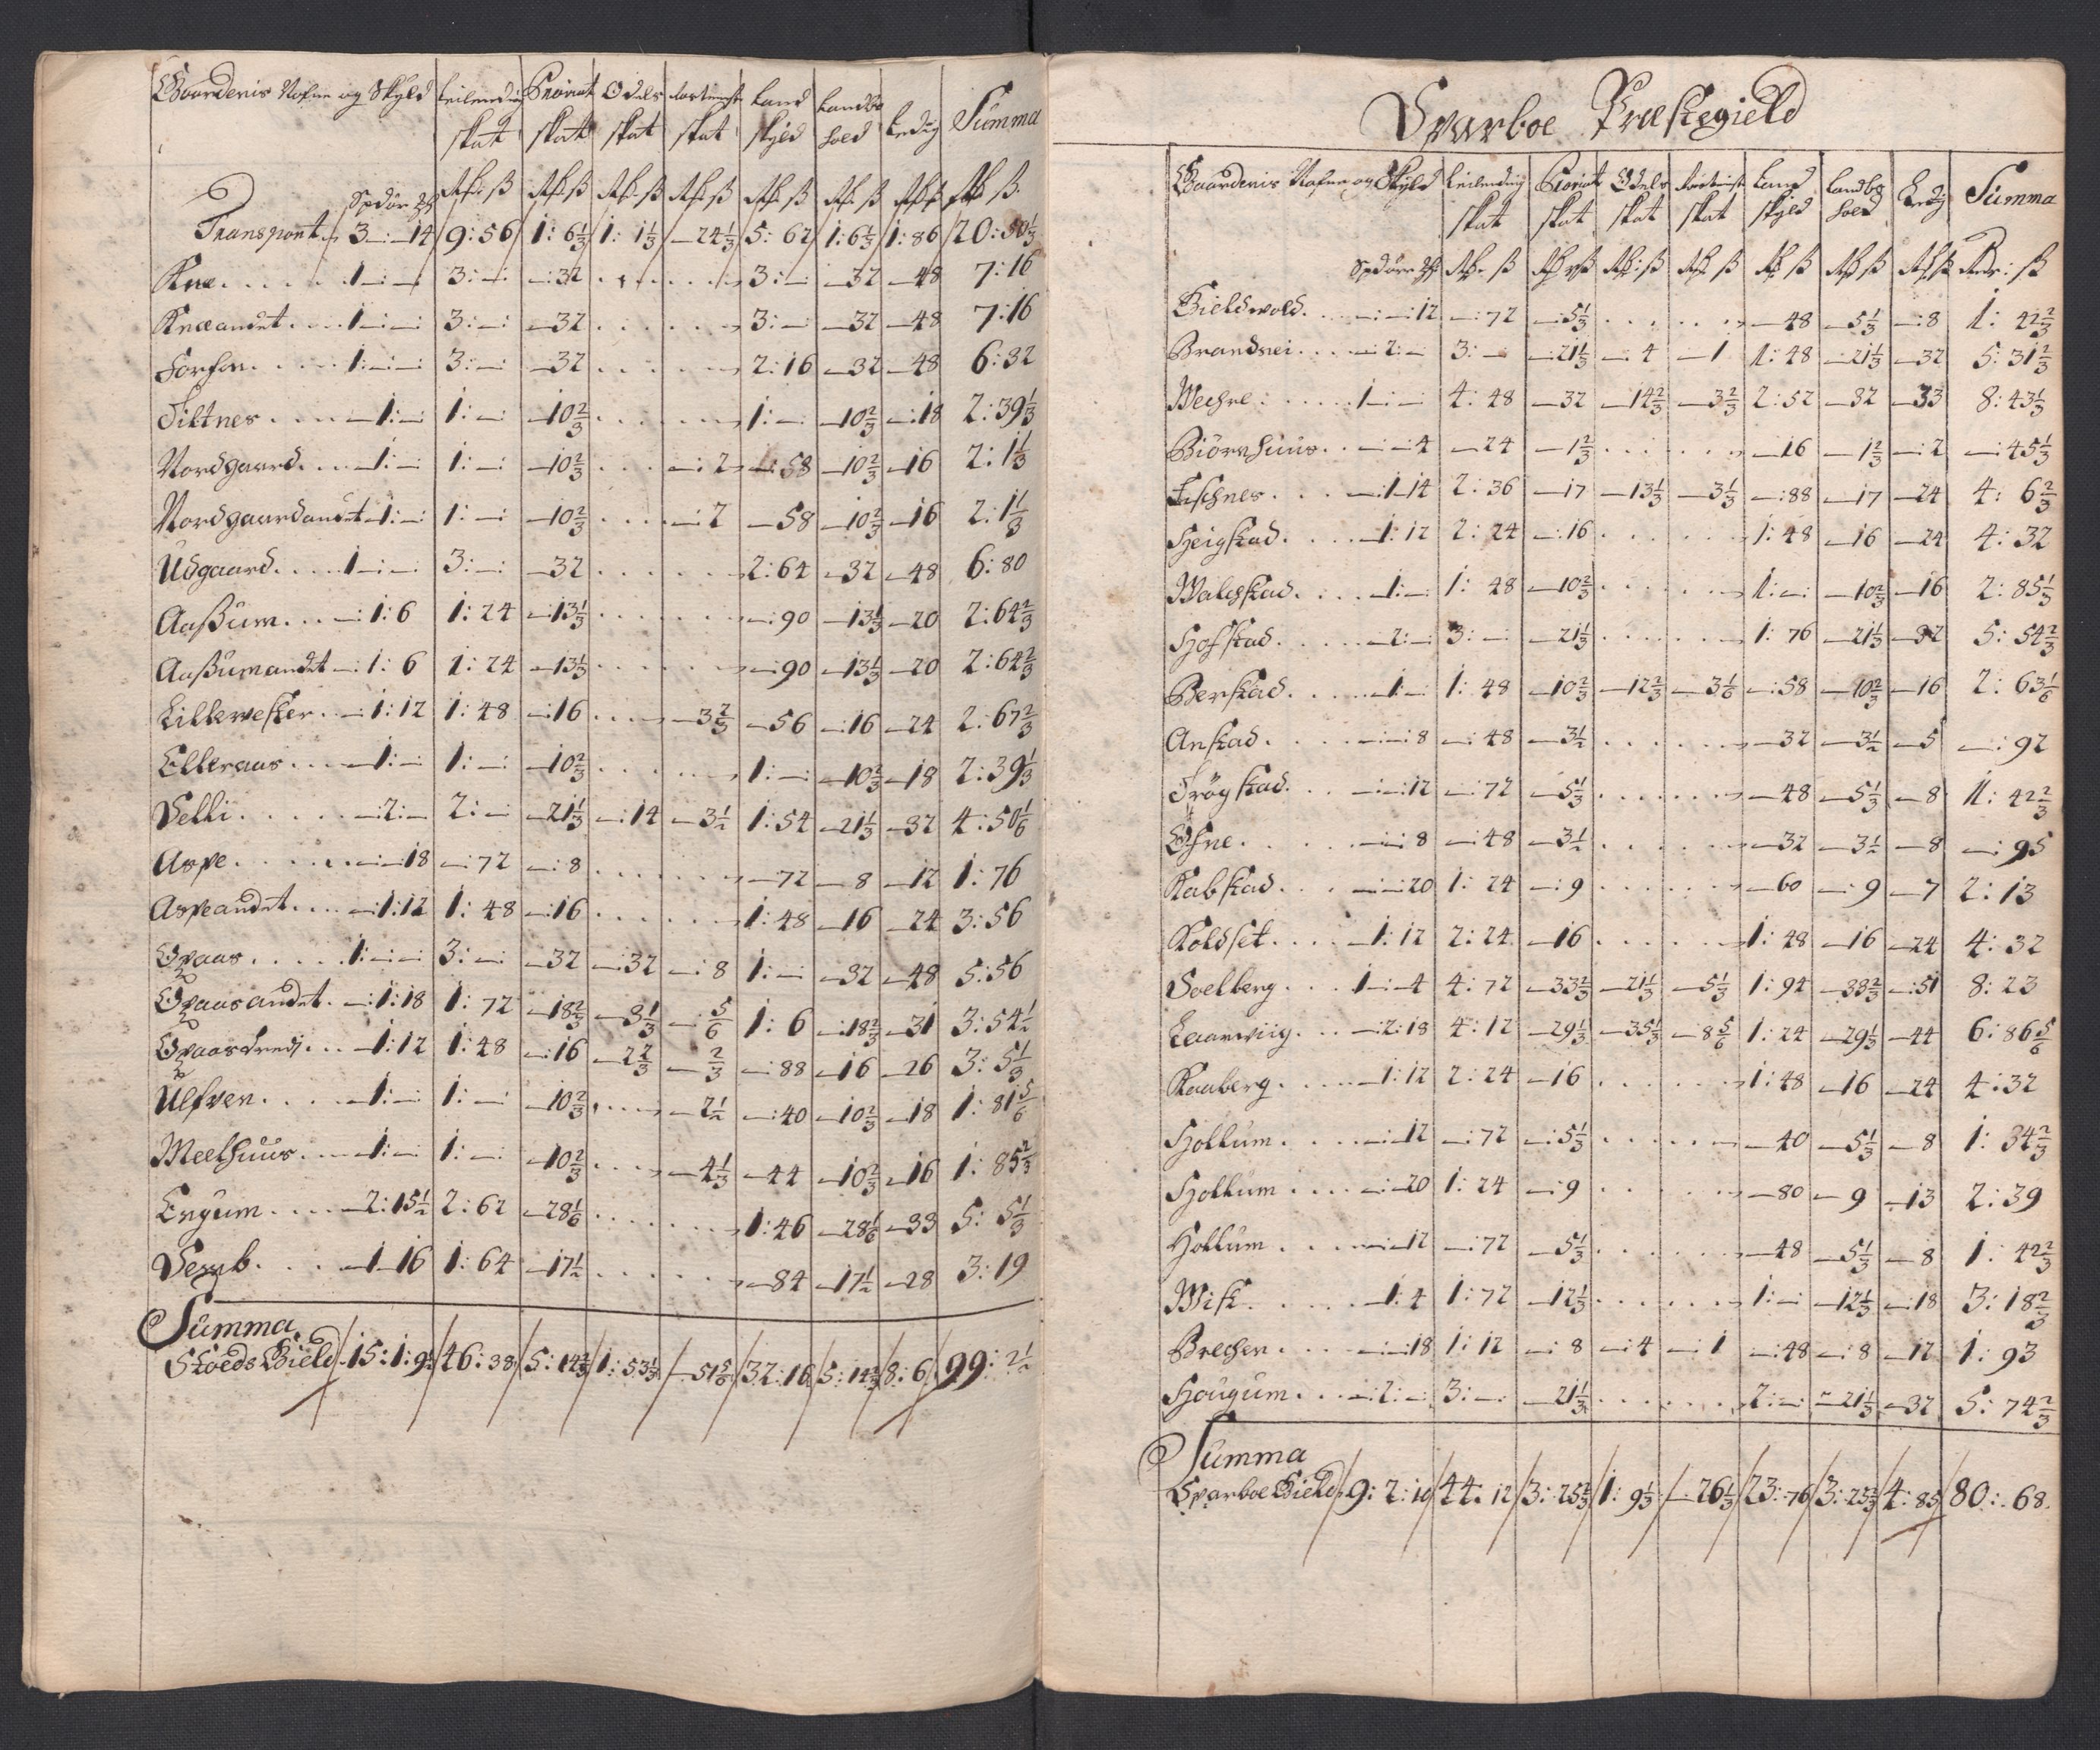 Gaardenis Nafne og Skyld Leilending skat Proviant skat Odels skat skat Land skyld Landbo hold Ledig Summa
Spdör ℔ Rdr ß Rdr ß Rdr ß Rdr ß Rdr ß Rdr ß Rdr ß Rdr ß
Transport 3 — 14 9: 56 1: 6⅓ 1: 1⅓ — 24⅓ 5: 62 1: 6⅓ 1: 86 20: 50⅓
Kne 1 — 3: — — 32 . . . 3: — — 32 — 48 7: 16
Kneandet 1 — 3: — — 32 . . . 3: — — 32 — 48 7: 16
Forfor 1 — 3: — — 32 . . . 2: 16 — 32 — 48 6: 32
Tiltnes — 1: — 1: — — 10⅔ . . . 1: — — 10⅔ — 18 2: 39⅓
Nordgaard — 1: — 1: — — 10⅔ . . . — 2 — 58 — 10⅔ — 16 2: 1⅓
Nordgaardandet — 1: — 1: — — 10⅔ . . . — 2 — 58 — 10⅔ — 16 2: 1⅓
Udgaard 1 — 3: — — 32 . . . 2: 64 — 32 — 48 6: 80
Aaßum — 1: 6 1: 24 — 13⅓ . . . — 90 — 13⅓ — 20 2: 64⅔
Aaßumandet — 1: 6 1: 24 — 13⅓ . . . — 90 — 13⅓ — 20 2: 64⅔
Lillewester — 1: 12 1: 48 — 16 . . . — 3⅔ — 56 — 16 — 24 2: 67⅔
Elleraas — 1: — 1: — — 10⅔ . . . 1: — — 10⅔ — 18 2: 39⅓
Selli — 2: — 2: — — 21⅓ — 14 — 3½ 1: 54 — 21⅓ — 32 4: 50⅙
Aspe — 18 — 72 — 8 . . . — 72 — 8 — 12 1: 76
Aspeandet — 1: 12 1: 48 — 16 . . . 1: 48 — 16 — 24 3: 56
Opaas 1: — 3: — — 32 — 32 — 8 1: — — 32 — 48 5: 56
Opaasandet — 1: 18 1: 72 — 18⅔ — 3⅓ — ⅚ 1: 6 — 18⅔ — 31 3: 54½
Opaastredi — 1: 12 1: 48 — 16 — 2⅔ — ⅔ — 88 — 16 — 26 3: 5⅓
Ulfven — 1: — 1: — — 10⅔ . . . — 2½ — 40 — 10⅔ — 18 1: 81⅚
Meelhuus — 1: — 1: — — 10⅔ . . . — 4⅓ — 44 — 10⅔ — 16 1: 85⅔
Engum — 2: 15½ 2: 62 — 28⅙ . . . 1: 46 — 28⅙ — 33 5: 5⅓
Semb — 1 16 1: 64 — 17½ . . . — 84 — 17½ — 28 3: 19
Summa
Stoeds Gield 15: 1: 9½ 46: 38 5: 14⅔ 1: 53⅓ — 51⅚ 32: 16 5: 14⅔ 8: 6 99: 2½
Sparboe Præstegield
Gaardenis Nafne og Skyld Leilending skat Proviant skat Odels skat skat Land skyld Landbo hold Ledig Summa
Spdör ℔ Rdr ß Rdr ß Rdr ß Rdr ß Rdr ß Rdr ß Rdr ß Rdr: ß
Gieldwold — 12 — 72 — 5⅓ . . . — 48 — 5⅓ — 8 1: 42⅔
Brandsei — 2: — 3: — — 21⅓ — 4 — 1 1: 48 — 21⅓ — 32 5: 31⅔
Wechre 1 — 4: 48 — 32 — 14⅔ — 3⅔ 2: 52 — 32 — 33 8: 43⅓
Biörnhuus — 4 — 24 — 1⅔ . . . — 16 — 1⅔ — 2 — 45⅓
Tischnes — 1: 14 2: 36 — 17 — 13⅓ — 3⅓ — 88 — 17 — 24 4: 6⅔
Heigstad — 1: 12 2: 24 — 16 . . . 1: 48 — 16 — 24 4: 32
Walchstad — 1: — 1: 48 — 10⅔ . . . 1: — — 10⅔ — 16 2: 85⅓
Hofstad — 2: — 3: — — 21⅓ . . . 1: 76 — 21⅓ — 32 5: 54⅔
Berstad — 1: — 1: 48 — 10⅔ — 12⅔ — 3⅙ — 58 — 10⅔ — 16 2: 63⅙
Anstad — 8 — 48 — 3½ . . . — 32 — 3½ — 5 — 92
Trögstad — 12 — 72 — 5⅓ . . . — 48 — 5⅓ — 8 1: 42⅔
Öhne — 8 — 48 — 3½ . . . — 32 — 3½ — 8 — 95
Kabstad — 20 1: 24 — 9 . . . — 60 — 9 — 7 2: 13
Koldset — 1: 12 2: 24 — 16 . . . 1: 48 — 16 — 24 4: 32
Soelberg 1 — 4 4: 72 — 33⅔ — 21⅓ — 5⅓ 1: 94 — 33⅔ — 51 8: 23
Laarwiig — 2: 18 4: 12 — 29⅓ — 35⅓ — 8⅚ 1: 24 — 29⅓ — 44 6: 86⅚
Raaberg — 1: 12 2: 24 — 16 . . . 1: 48 — 16 — 24 4: 32
Hollum — 12 — 72 — 5⅓ . . . — 40 — 5⅓ — 8 1: 34⅔
Hollum — 20 1: 24 — 9 . . . — 80 — 9 — 13 2: 39
Hollum — 12 — 72 — 5⅓ . . . — 48 — 5⅓ — 8 1: 42⅔
Wist — 1: 4 1: 72 — 12⅓ . . . 1: — — 12⅓ — 18 3: 18⅔
Brechen — 18 1: 12 — 8 — 4 — 1 — 48 — 8 — 12 1: 93
Hougum — 2: — 3: — — 21⅓ . . . 2: — — 21⅓ — 32 5: 74⅔
Summa
Sparboe Gield 9: 2: 10 44: 12 3: 25⅔ 1: 9⅓ — 26⅓ 23: 76 3: 25⅔ 4: 85 80: 68